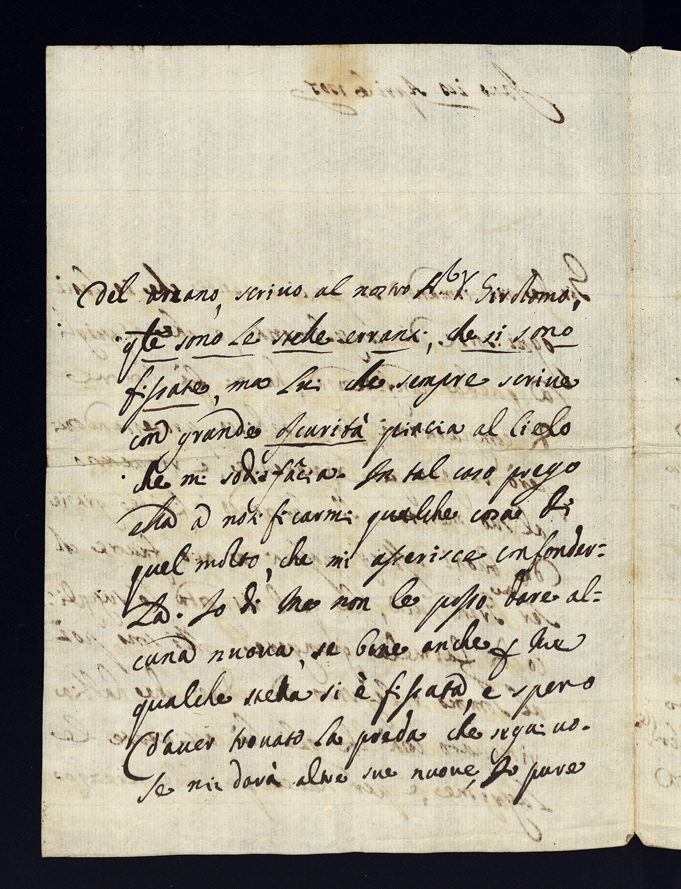 del arcano, scrivo al nostro A.be V. Girolomo,
q.te sono le stelle erranti, che si sono
fissate, ma lui che sempre scrive
con grande oscurità piacia al Cielo
che mi sodisfacia. In tal caso prego
ella a notificarmi qualche cosa di
quel molto, che mi asserisce confonder=
La. Io di me non le posso dare al=
cuna nuova, se bene anche p me
qualche stella si è fissata, e spero
d'aver trovato la preda che seguivo.
Se mi darà altre sue nuove, Io pure